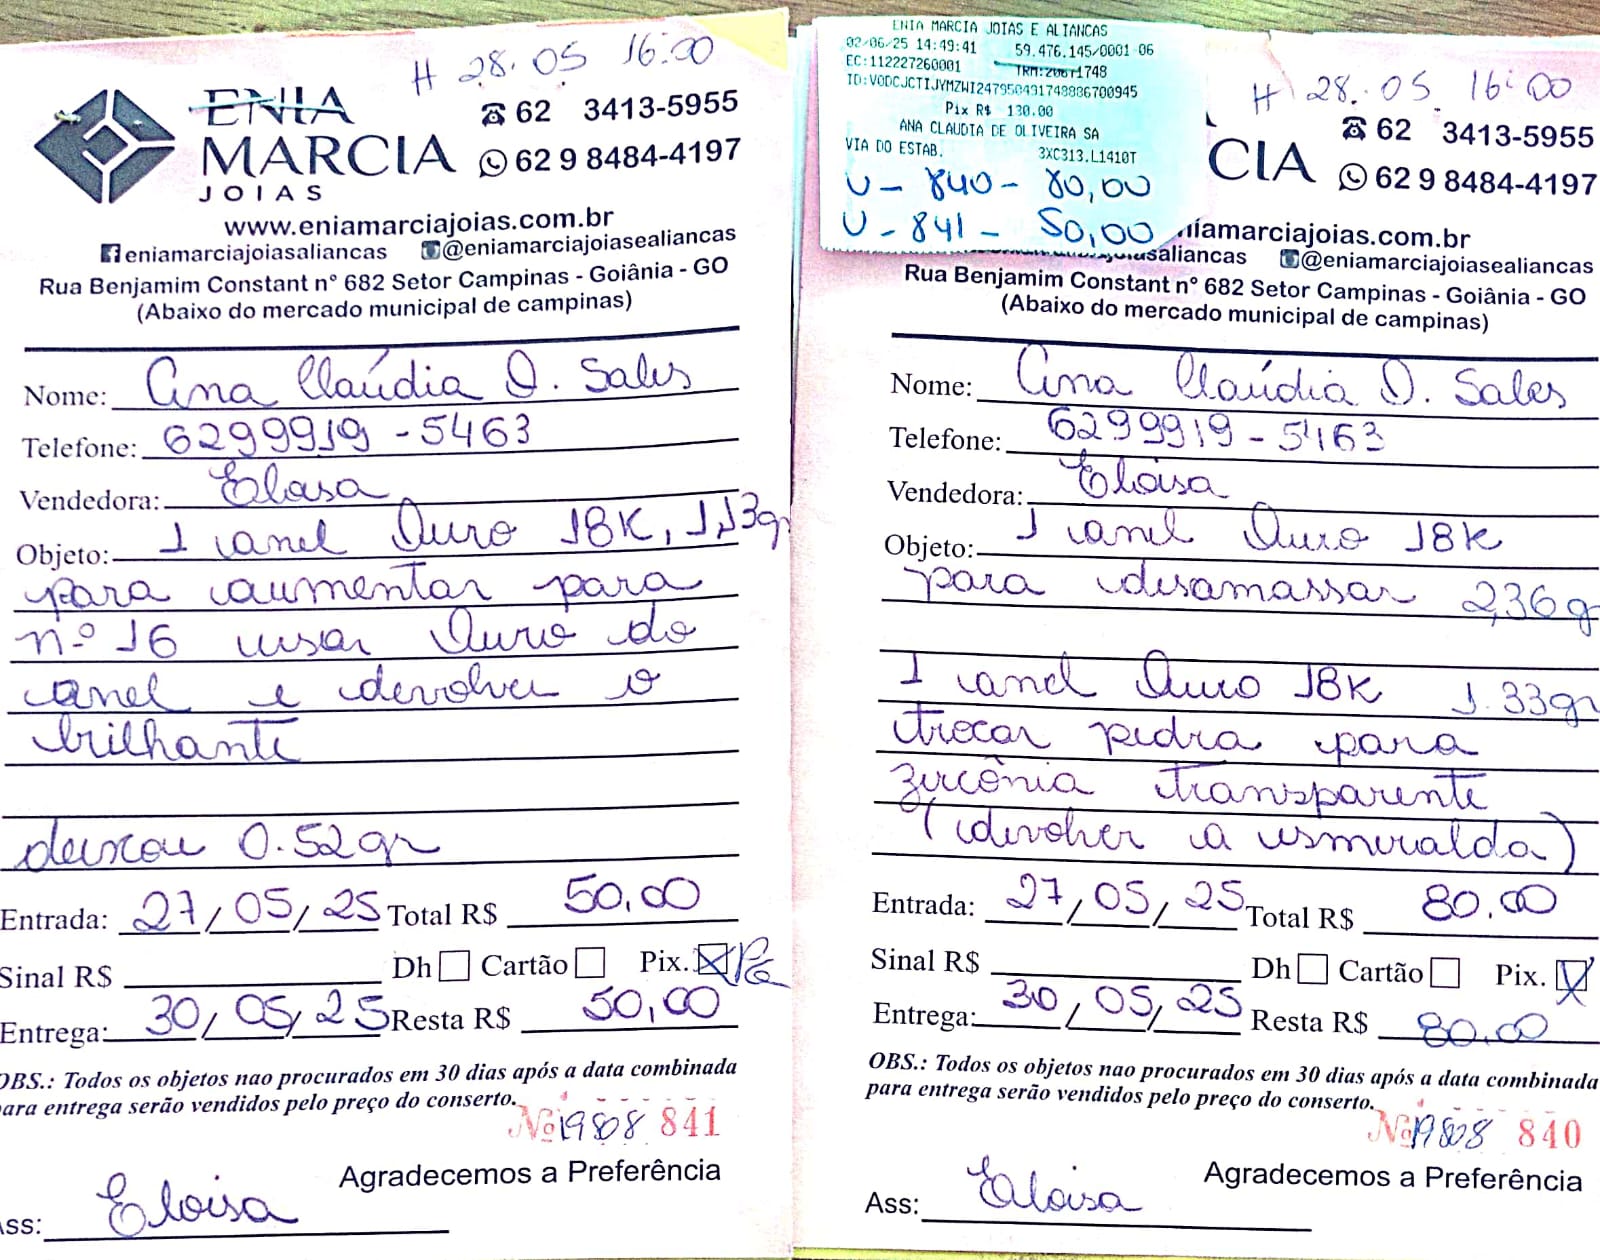 H 28.05 16:00
ENIA
MARCIA
JOIAS
62 3413-5955
62 9 8484-4197
www.eniamarciajoias.com.br
eniamarciajoiasaliancas @eniamarciajoiasealiancas
Rua Benjamim Constant nº 682 Setor Campinas - Goiânia - GO
(Abaixo do mercado municipal de campinas)
Nome: Ana Claúdia O. Sales
Telefone: 6299919-5463
Vendedora: Eloisa
Objeto: 1 anel Ouro 18K, 1,13gr
para aumentar para
nº 16 usar Ouro do
anel e devolver o
brilhante
deixou 0.52gr
Entrada: 27/05/25 Total R$ 50,00
Sinal R$ Dh Cartão Pix. Pg
Entrega: 30/05/25 Resta R$ 50,00
OBS.: Todos os objetos nao procurados em 30 dias após a data combinada
para entrega serão vendidos pelo preço do conserto.
Nº 19808 841
Agradecemos a Preferência
Ass: Eloisa
ENIA MARCIA JOIAS E ALIANCAS
02/06/25 14:49:41 59.476.145/0001-06
EC:112227260001
Pix R$ 130.00
ANA CLAUDIA DE OLIVEIRA SA
VIA DO ESTAB. 3XC313.L1410T
U - 840 - 80,00
U - 841 - 50,00
H 28.05. 16:00
CIA
62 3413-5955
62 9 8484-4197
niamarciajoias.com.br
joiasaliancas @eniamarciajoiasealiancas
Rua Benjamim Constant nº 682 Setor Campinas - Goiânia - GO
(Abaixo do mercado municipal de campinas)
Nome: Ana Claúdia O. Sales
Telefone: 6299919-5463
Vendedora: Eloisa
Objeto: 1 anel Ouro 18K
para desamassar 2,36g
1 anel Ouro 18K 1.33gr
trocar pedra para
zircônia transparente
(devolver a esmeralda)
Entrada: 27/05/25 Total R$ 80.00
Sinal R$ Dh Cartão Pix.
Entrega: 30/05/25 Resta R$ 80.00
OBS.: Todos os objetos nao procurados em 30 dias após a data combinada
para entrega serão vendidos pelo preço do conserto.
Nº 19808 840
Agradecemos a Preferência
Ass: Eloisa